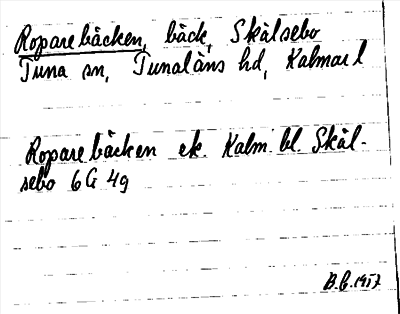 Roparebäcken, bäck, Skälsebo
Tuna sn, Tunaläns hd, Kalmar l
Roparebäcken ek. Kalm. bl. Skäl-
sebo 6G 4g
B.E. 1957